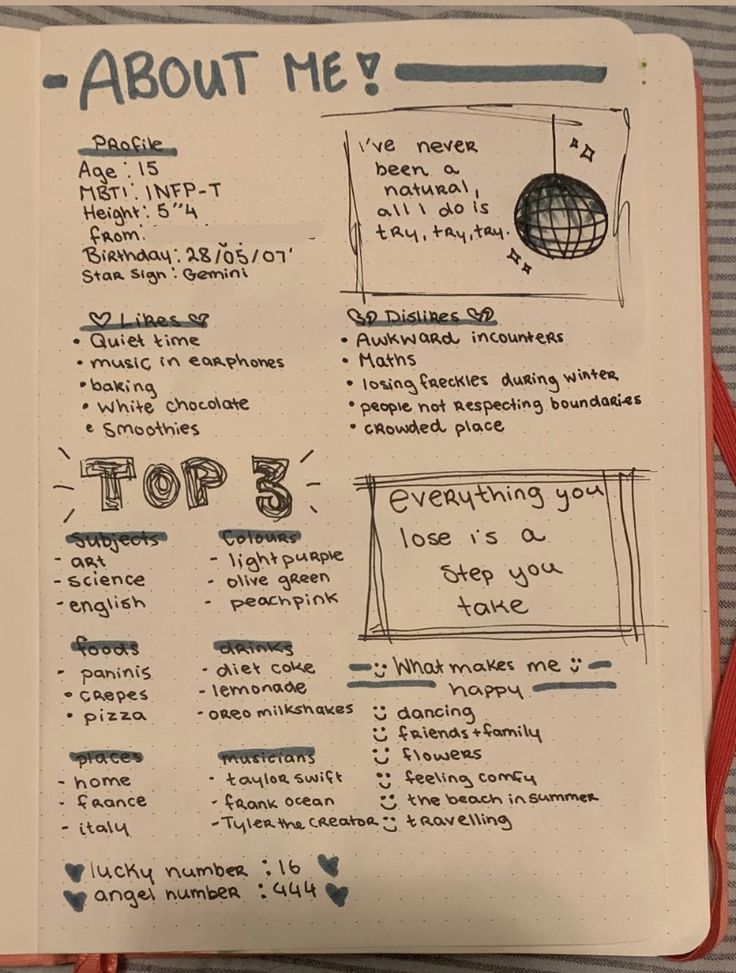 - ABOUT ME!
Profile
Age: 15
MBTI: INFP-T
Height: 5"4
from:
Birthday: 28/05/07'
Star sign: Gemini
I've never
been a
natural,
all I do is
try, try, try.
♡ Likes ♡
• Quiet time
• music in earphones
• baking
• White chocolate
• Smoothies
Dislikes
• Awkward incounters
• Maths
• losing freckles during winter
• people not respecting boundaries
• crowded place
TOP 3
Subjects
- art
- science
- english
Colours
- light purple
- olive green
- peach pink
everything you
lose is a
step you
take
foods
- paninis
• crepes
• pizza
drinks
- diet coke
- lemonade
- oreo milkshakes
places
- home
- france
- italy
musicians
- taylor swift
- frank ocean
- Tyler the creator
What makes me
happy
dancing
friends + family
flowers
feeling comfy
the beach in summer
travelling
lucky number : 16
angel number : 444